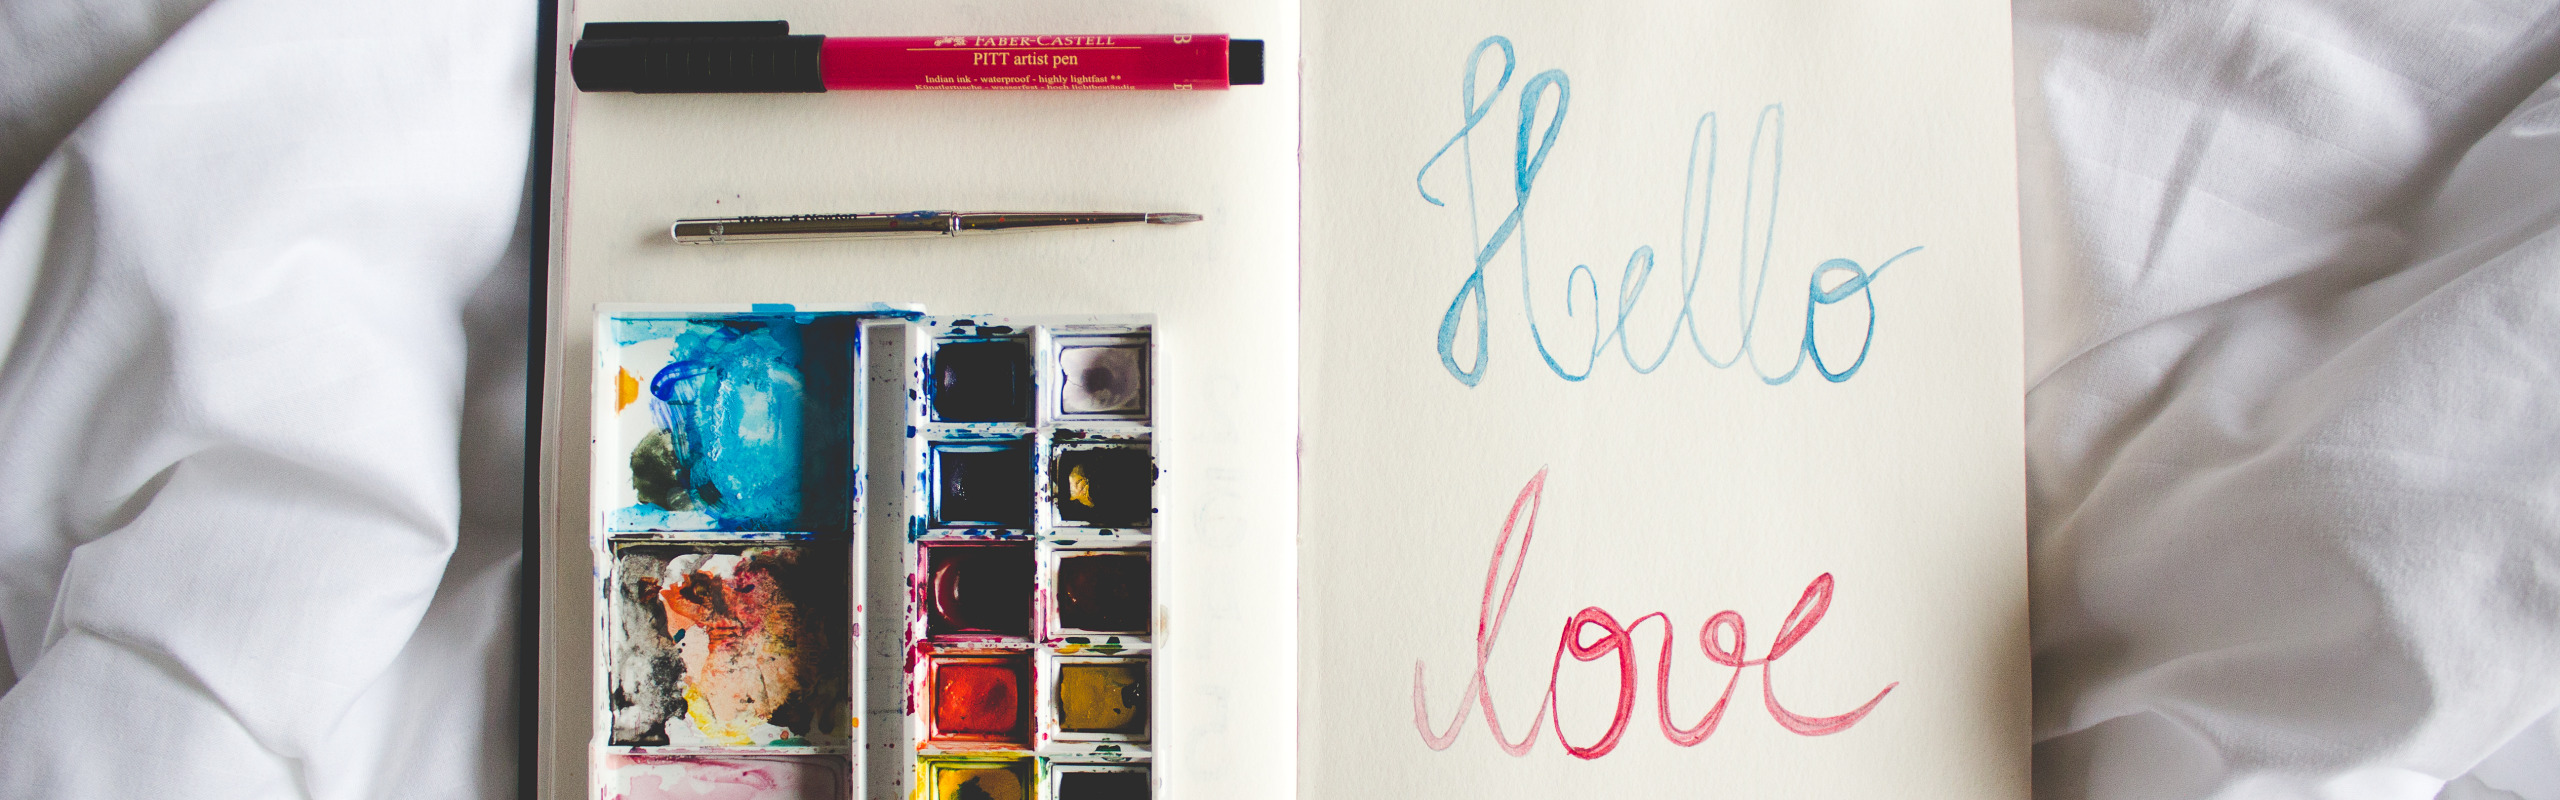 FABER-CASTELL
PITT artist pen
Indian ink - waterproof - highly lightfast **
Künstlertusche - wasserfest - hoch lichtbeständig
B
B
Winsor & Newton
Hello
love